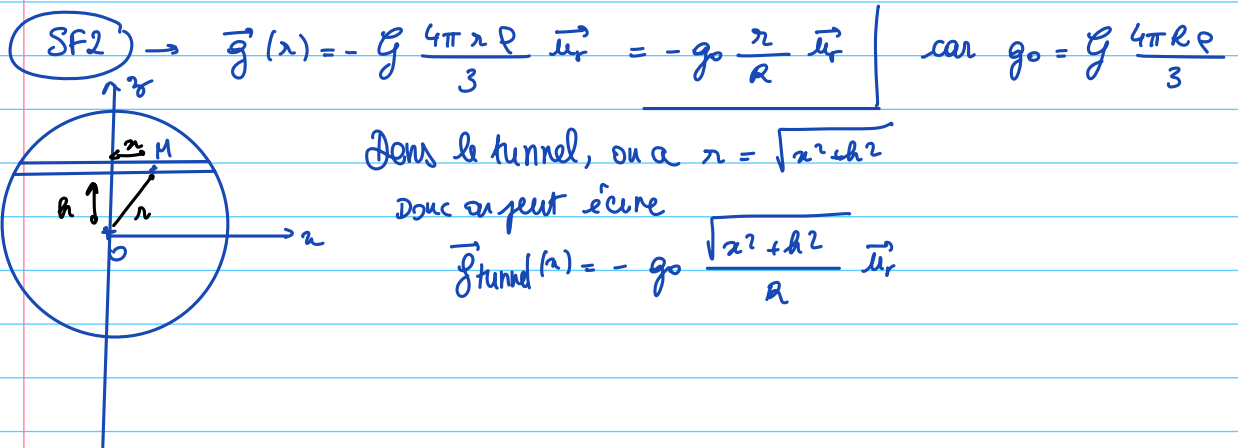 SF2 → $\vec{g}(r) = - \mathcal{G} \frac{4\pi r \rho}{3} \vec{u_r} = - g_0 \frac{r}{R} \vec{u_r}$ car $g_0 = \mathcal{G} \frac{4\pi R \rho}{3}$
z
x
M
Dans le tunnel, on a $r = \sqrt{x^2 + h^2}$
h
r
Donc on peut écrire
x
O
$\vec{g}_{tunnel}(x) = - g_0 \frac{\sqrt{x^2 + h^2}}{R} \vec{u_r}$